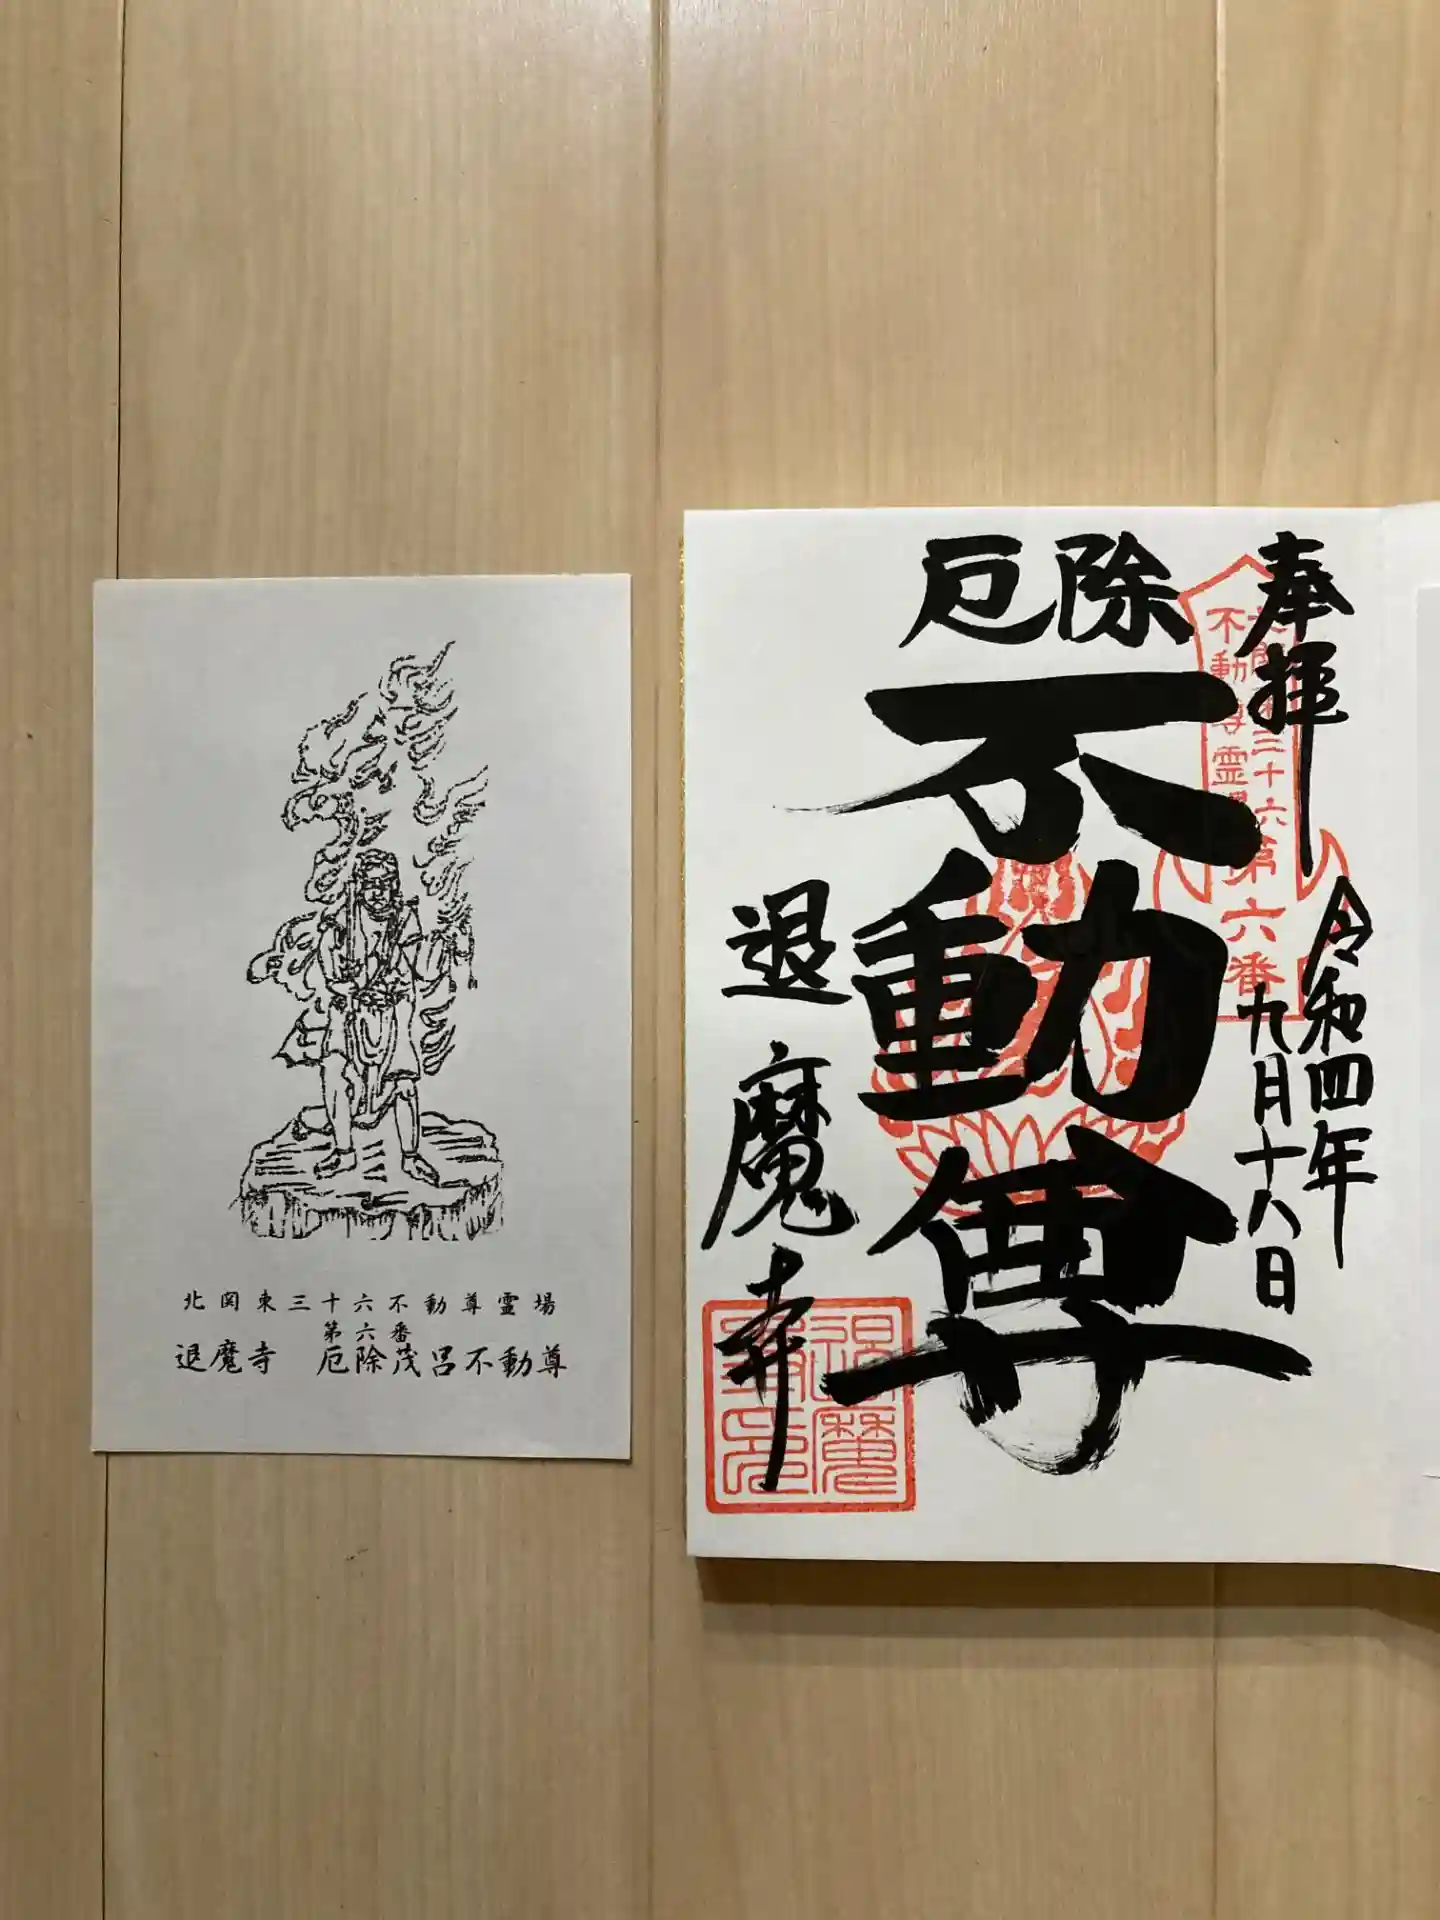 北関東三十六不動尊霊場
第六番
退魔寺 厄除茂呂不動尊
奉拝
令和四年
九月十八日
厄除
不動尊
退魔寺
三十六
不動尊霊
第六番